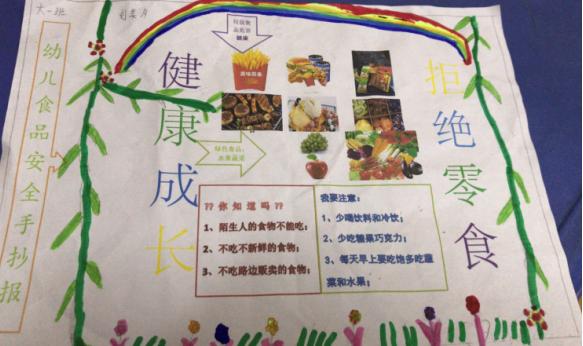 大一班
幼儿食品安全手抄报
健康成长
拒绝零食
垃圾食
品危害
健康
美味薯条
绿色食品:
水果蔬菜
??你知道吗??
1、陌生人的食物不能吃;
2、不吃不新鲜的食物;
3、不吃路边贩卖的食物;
我要注意:
1、少喝饮料和冷饮;
2、少吃糖果巧克力;
3、每天早上要吃饱多吃蔬
菜和水果;